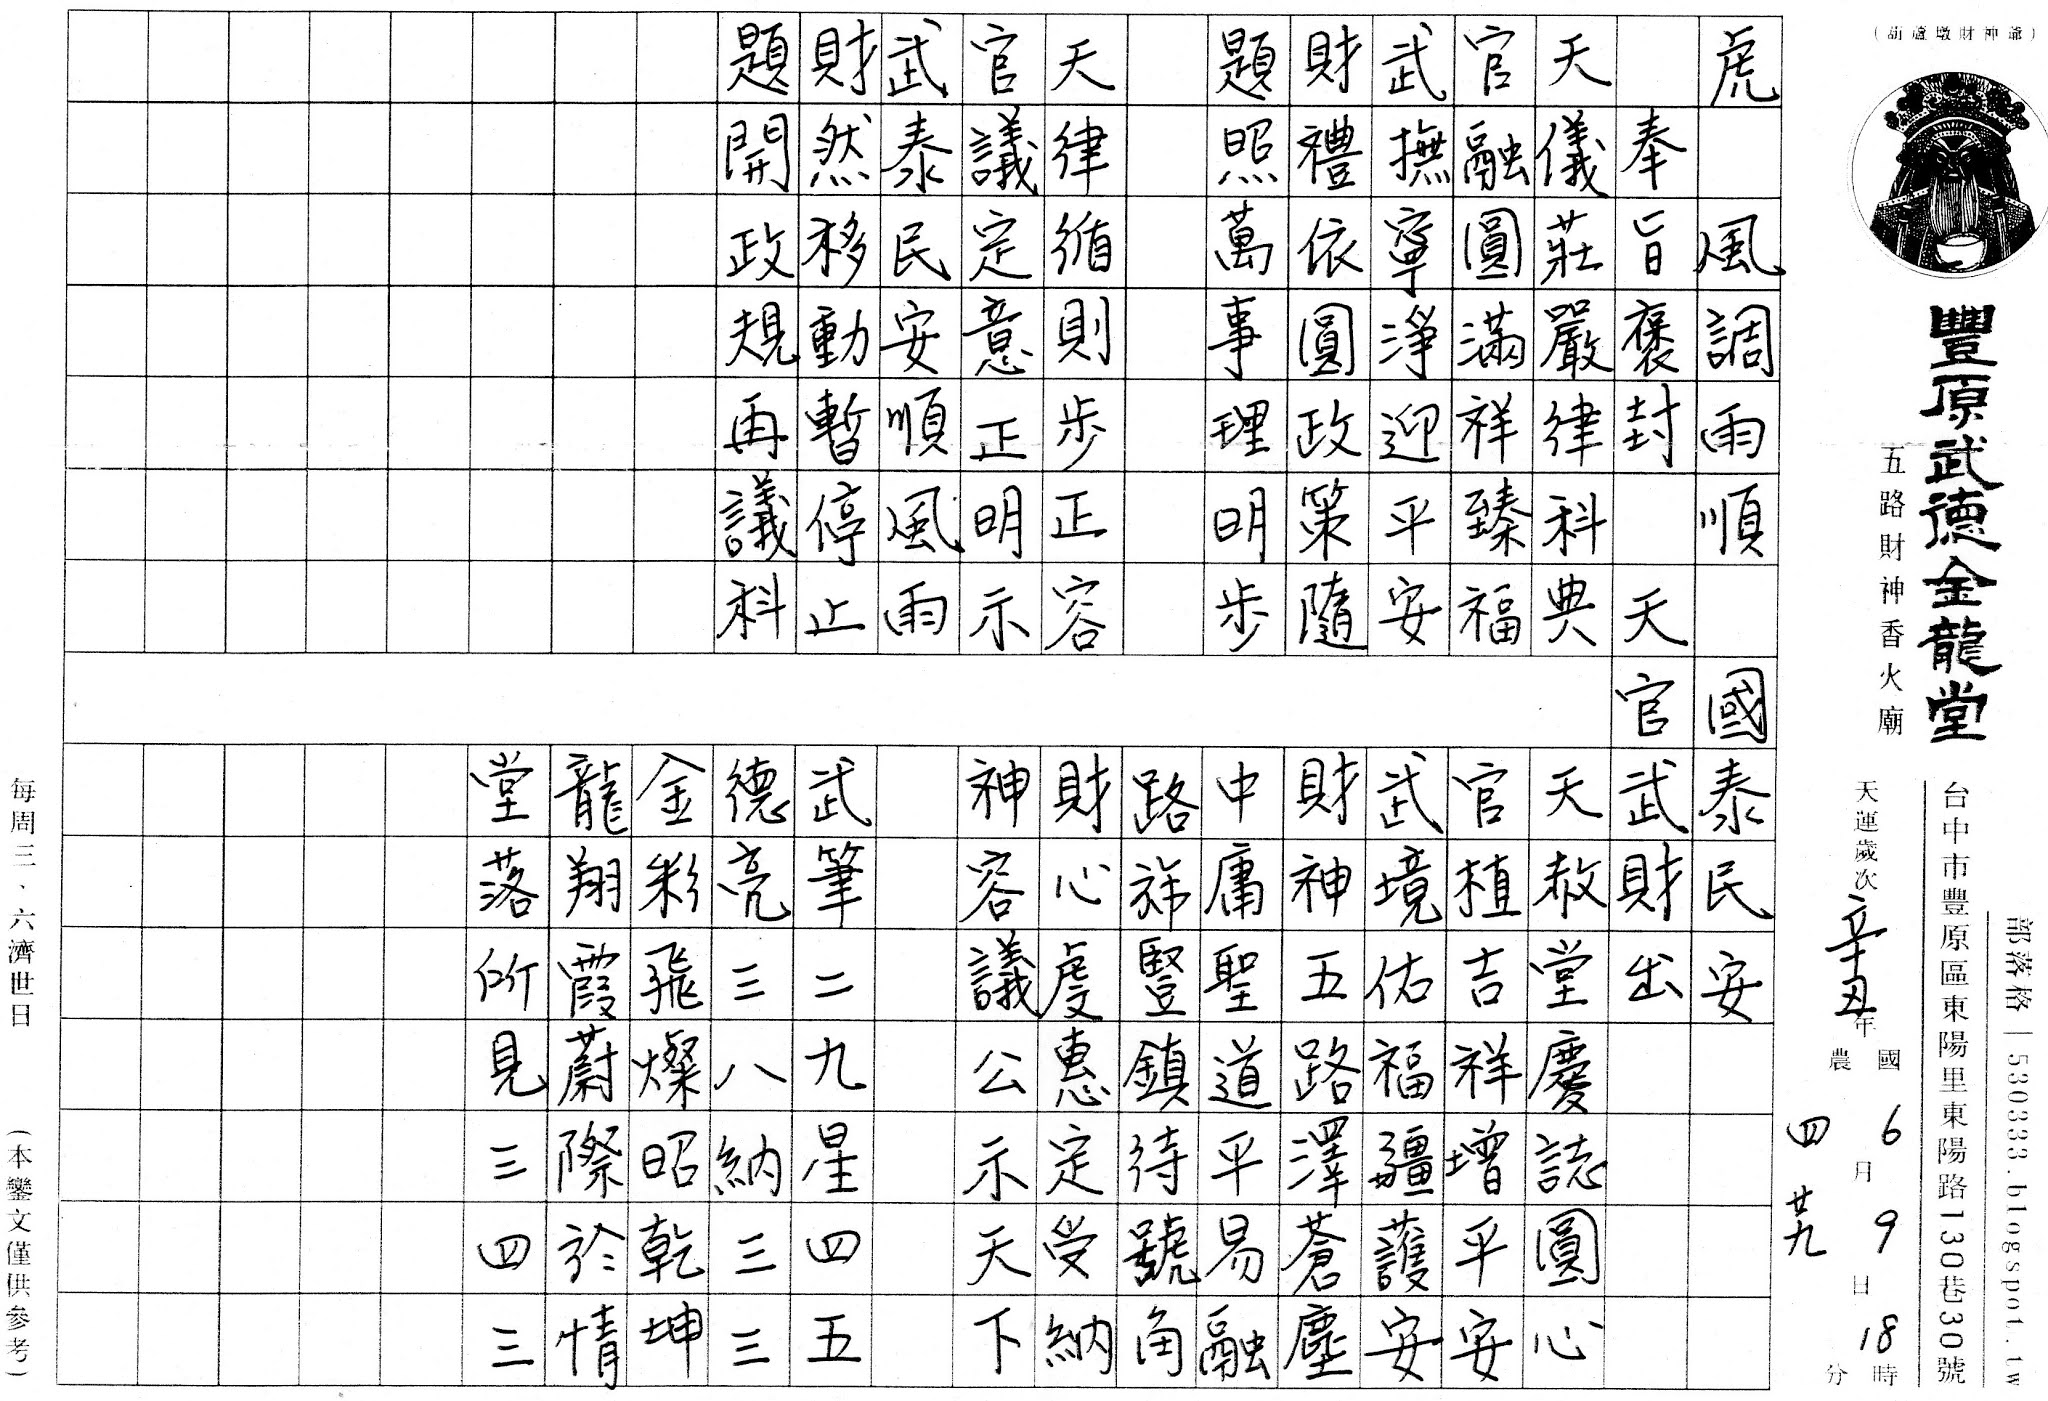 (葫蘆墩財神爺)
豐原武德金龍堂
五路財神香火廟
部落格｜530333.blogspot.tw
台中市豐原區東陽里東陽路130巷30號
天運歲次辛丑年
國 6月9日18時
農 四 廿九 分
虎 風調雨順 國泰民安
奉旨褒封 天官武財出
天儀莊嚴律科典
官融圓滿祥臻福
武撫寧淨迎平安
財禮依圓政策隨
題照萬事理明步
天律循則步正容
官議定意正明示
武泰民安順風雨
財然移動暫停止
題開政規再議科
天赦堂慶誌圓心
官植吉祥增平安
武境佑福疆護安
財神五路澤蒼塵
中庸聖道平易融
路旆豎鎮待號角
財心虔惠定受納
神容議公示天下
武筆二九星四五
德亮三八納三三
金彩飛燦昭乾坤
龍翔霞蔚際於情
堂落所見三四三
每周三、六濟世日
(本鑾文僅供參考)